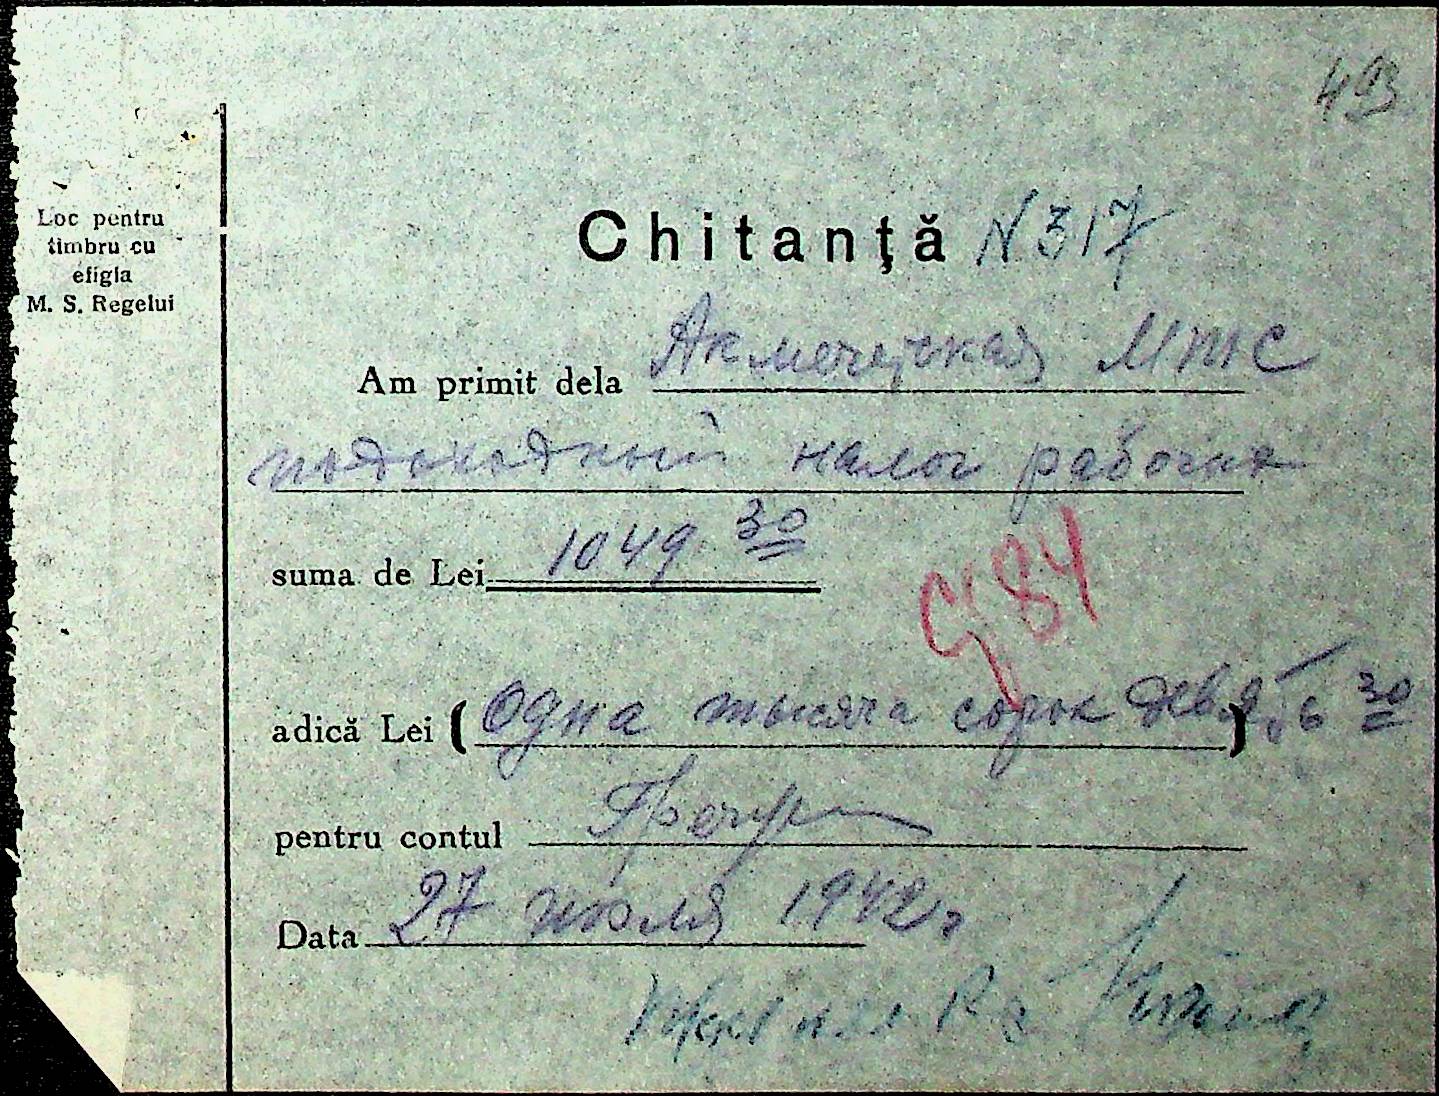 493
Loc pentru
timbru cu
efigia
M. S. Regelui
Chitanţă N 317
Am primit dela Акмечетская МТС
подоходный налог рабочих
suma de Lei 1049 30
984
adică Lei (Одна тысяча сорок девять 30)
pentru contul
Data 27 июля 1942 г